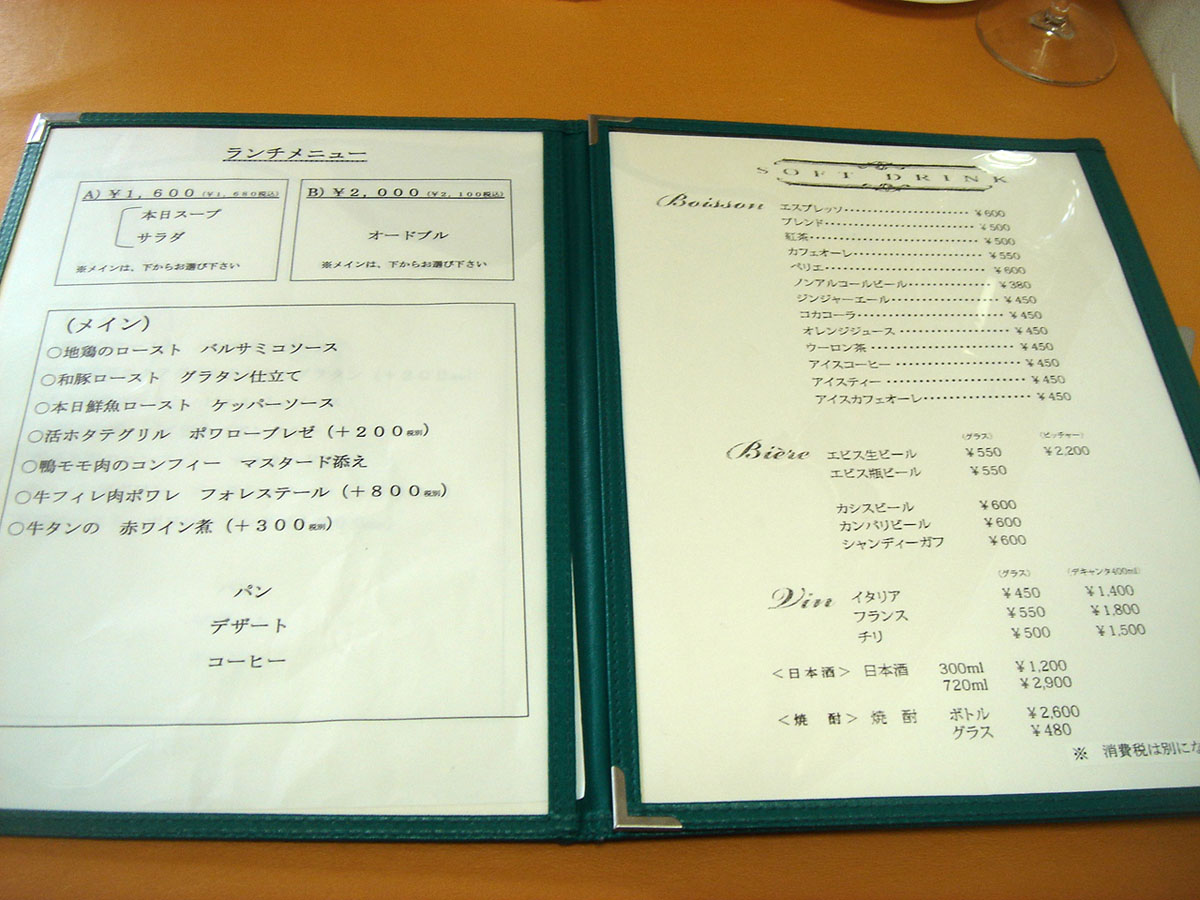 ランチメニュー
A) ￥1,600 (￥1,680税込)
本日スープ
サラダ
※メインは、下からお選び下さい
B) ￥2,000 (￥2,100税込)
オードブル
※メインは、下からお選び下さい
(メイン)
○地鶏のロースト バルサミコソース
○和豚ロースト グラタン仕立て
○本日鮮魚ロースト ケッパーソース
○活ホタテグリル ポワローブレゼ (＋200税別)
○鴨モモ肉のコンフィー マスタード添え
○牛フィレ肉ポワレ フォレステール (＋800税別)
○牛タンの 赤ワイン煮 (＋300税別)
パン
デザート
コーヒー
SOFT DRINK
Boisson エスプレッソ ￥600
ブレンド ￥500
紅茶 ￥500
カフェオーレ ￥550
ペリエ ￥600
ノンアルコールビール ￥380
ジンジャーエール ￥450
コカコーラ ￥450
オレンジジュース ￥450
ウーロン茶 ￥450
アイスコーヒー ￥450
アイスティー ￥450
アイスカフェオーレ ￥450
(グラス) (ピッチャー)
Bière エビス生ビール ￥550 ￥2,200
エビス瓶ビール ￥550
カシスビール ￥600
カンパリビール ￥600
シャンディーガフ ￥600
(グラス) (デキャンタ400ml)
Vin イタリア ￥450 ￥1,400
フランス ￥550 ￥1,800
チリ ￥500 ￥1,500
＜日本酒＞ 日本酒 300ml ￥1,200
720ml ￥2,900
＜焼 酎＞ 焼 酎 ボトル ￥2,600
グラス ￥480
※ 消費税は別にな